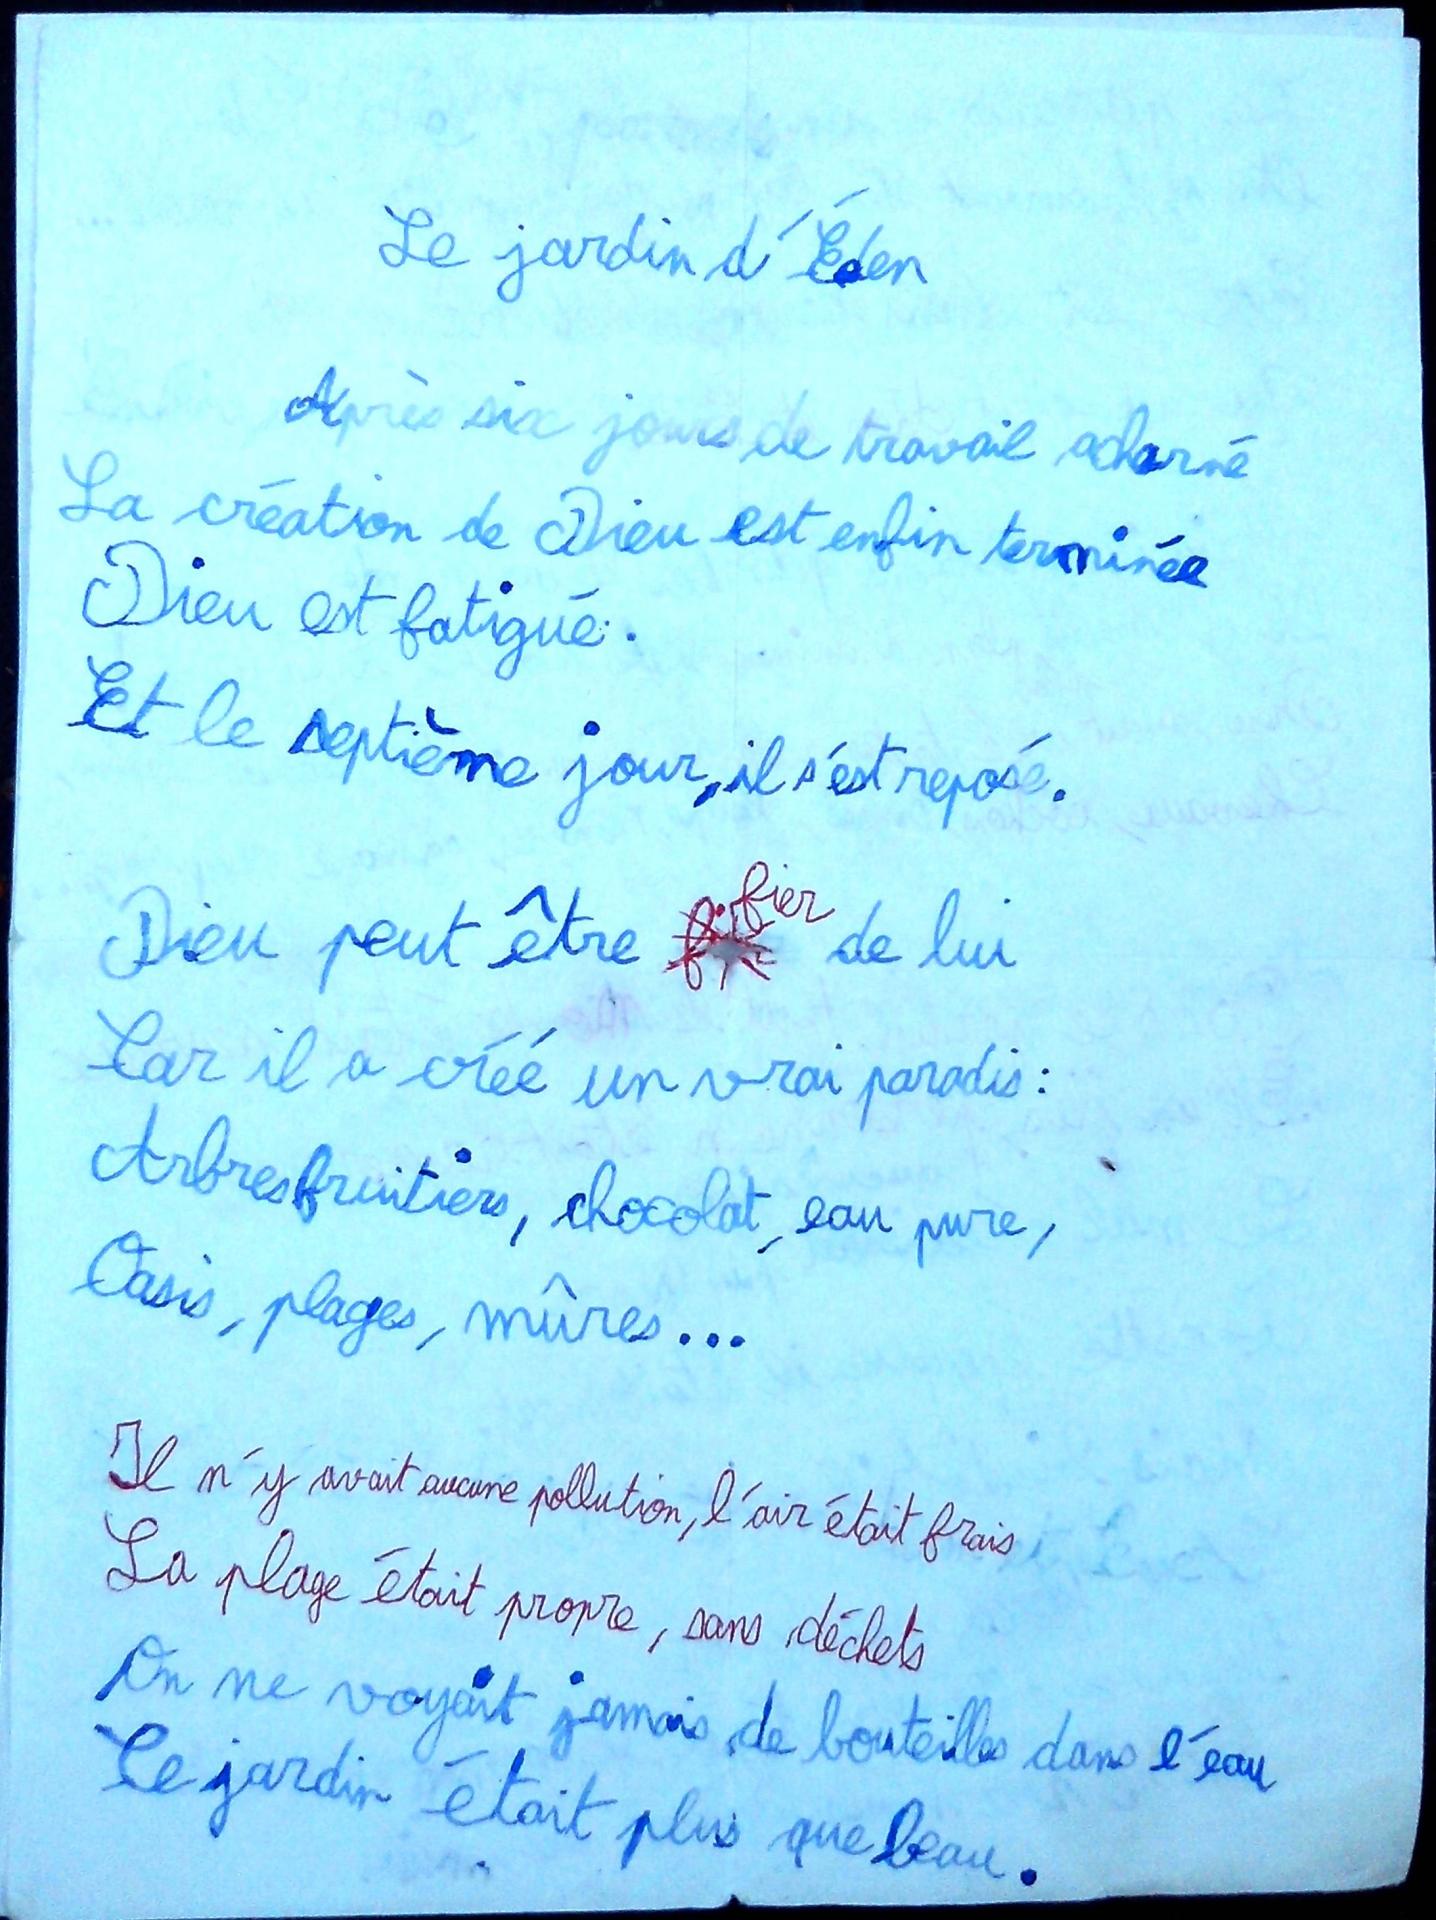 Le jardin d'Éden
Après six jours de travail acharné
La création de Dieu est enfin terminée
Dieu est fatigué.
Et le septième jour, il s'est reposé.
Dieu peut être fier de lui
Car il a créé un vrai paradis :
Arbres fruitiers, chocolat, eau pure,
Oasis, plages, mûres...
Il n'y avait aucune pollution, l'air était frais
La plage était propre, sans déchets
On ne voyait jamais de bouteilles dans l'eau
Ce jardin était plus que beau.